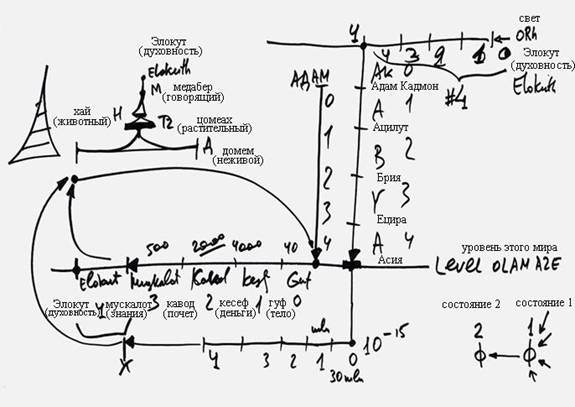 свет
ORh
Элокут
(духовность)
Elokuth
Элокут
(духовность)
Elokuth
M
медабер
(говорящий)
H
цомеах
(растительный)
хай
(животный)
домем
(неживой)
4 3 2 1 0
#4
АДАМ
0
1
2
3
4
AK 0
Адам Кадмон
A 1
Ацилут
B 2
Брия
Y 3
Ецира
A 4
Асия
уровень этого мира
Level OLAM AZE
500 2000 4000 40
Elokut Muskalot Kavod kesef Guf
Элокут
(духовность)
4 мускалот
(знания)
3 кавод
(почет)
2 кесеф
(деньги)
1 гуф
(тело)
0
X
4 3 2 1 0
mln
30 mln
10-15
состояние 2
2
состояние 1
1